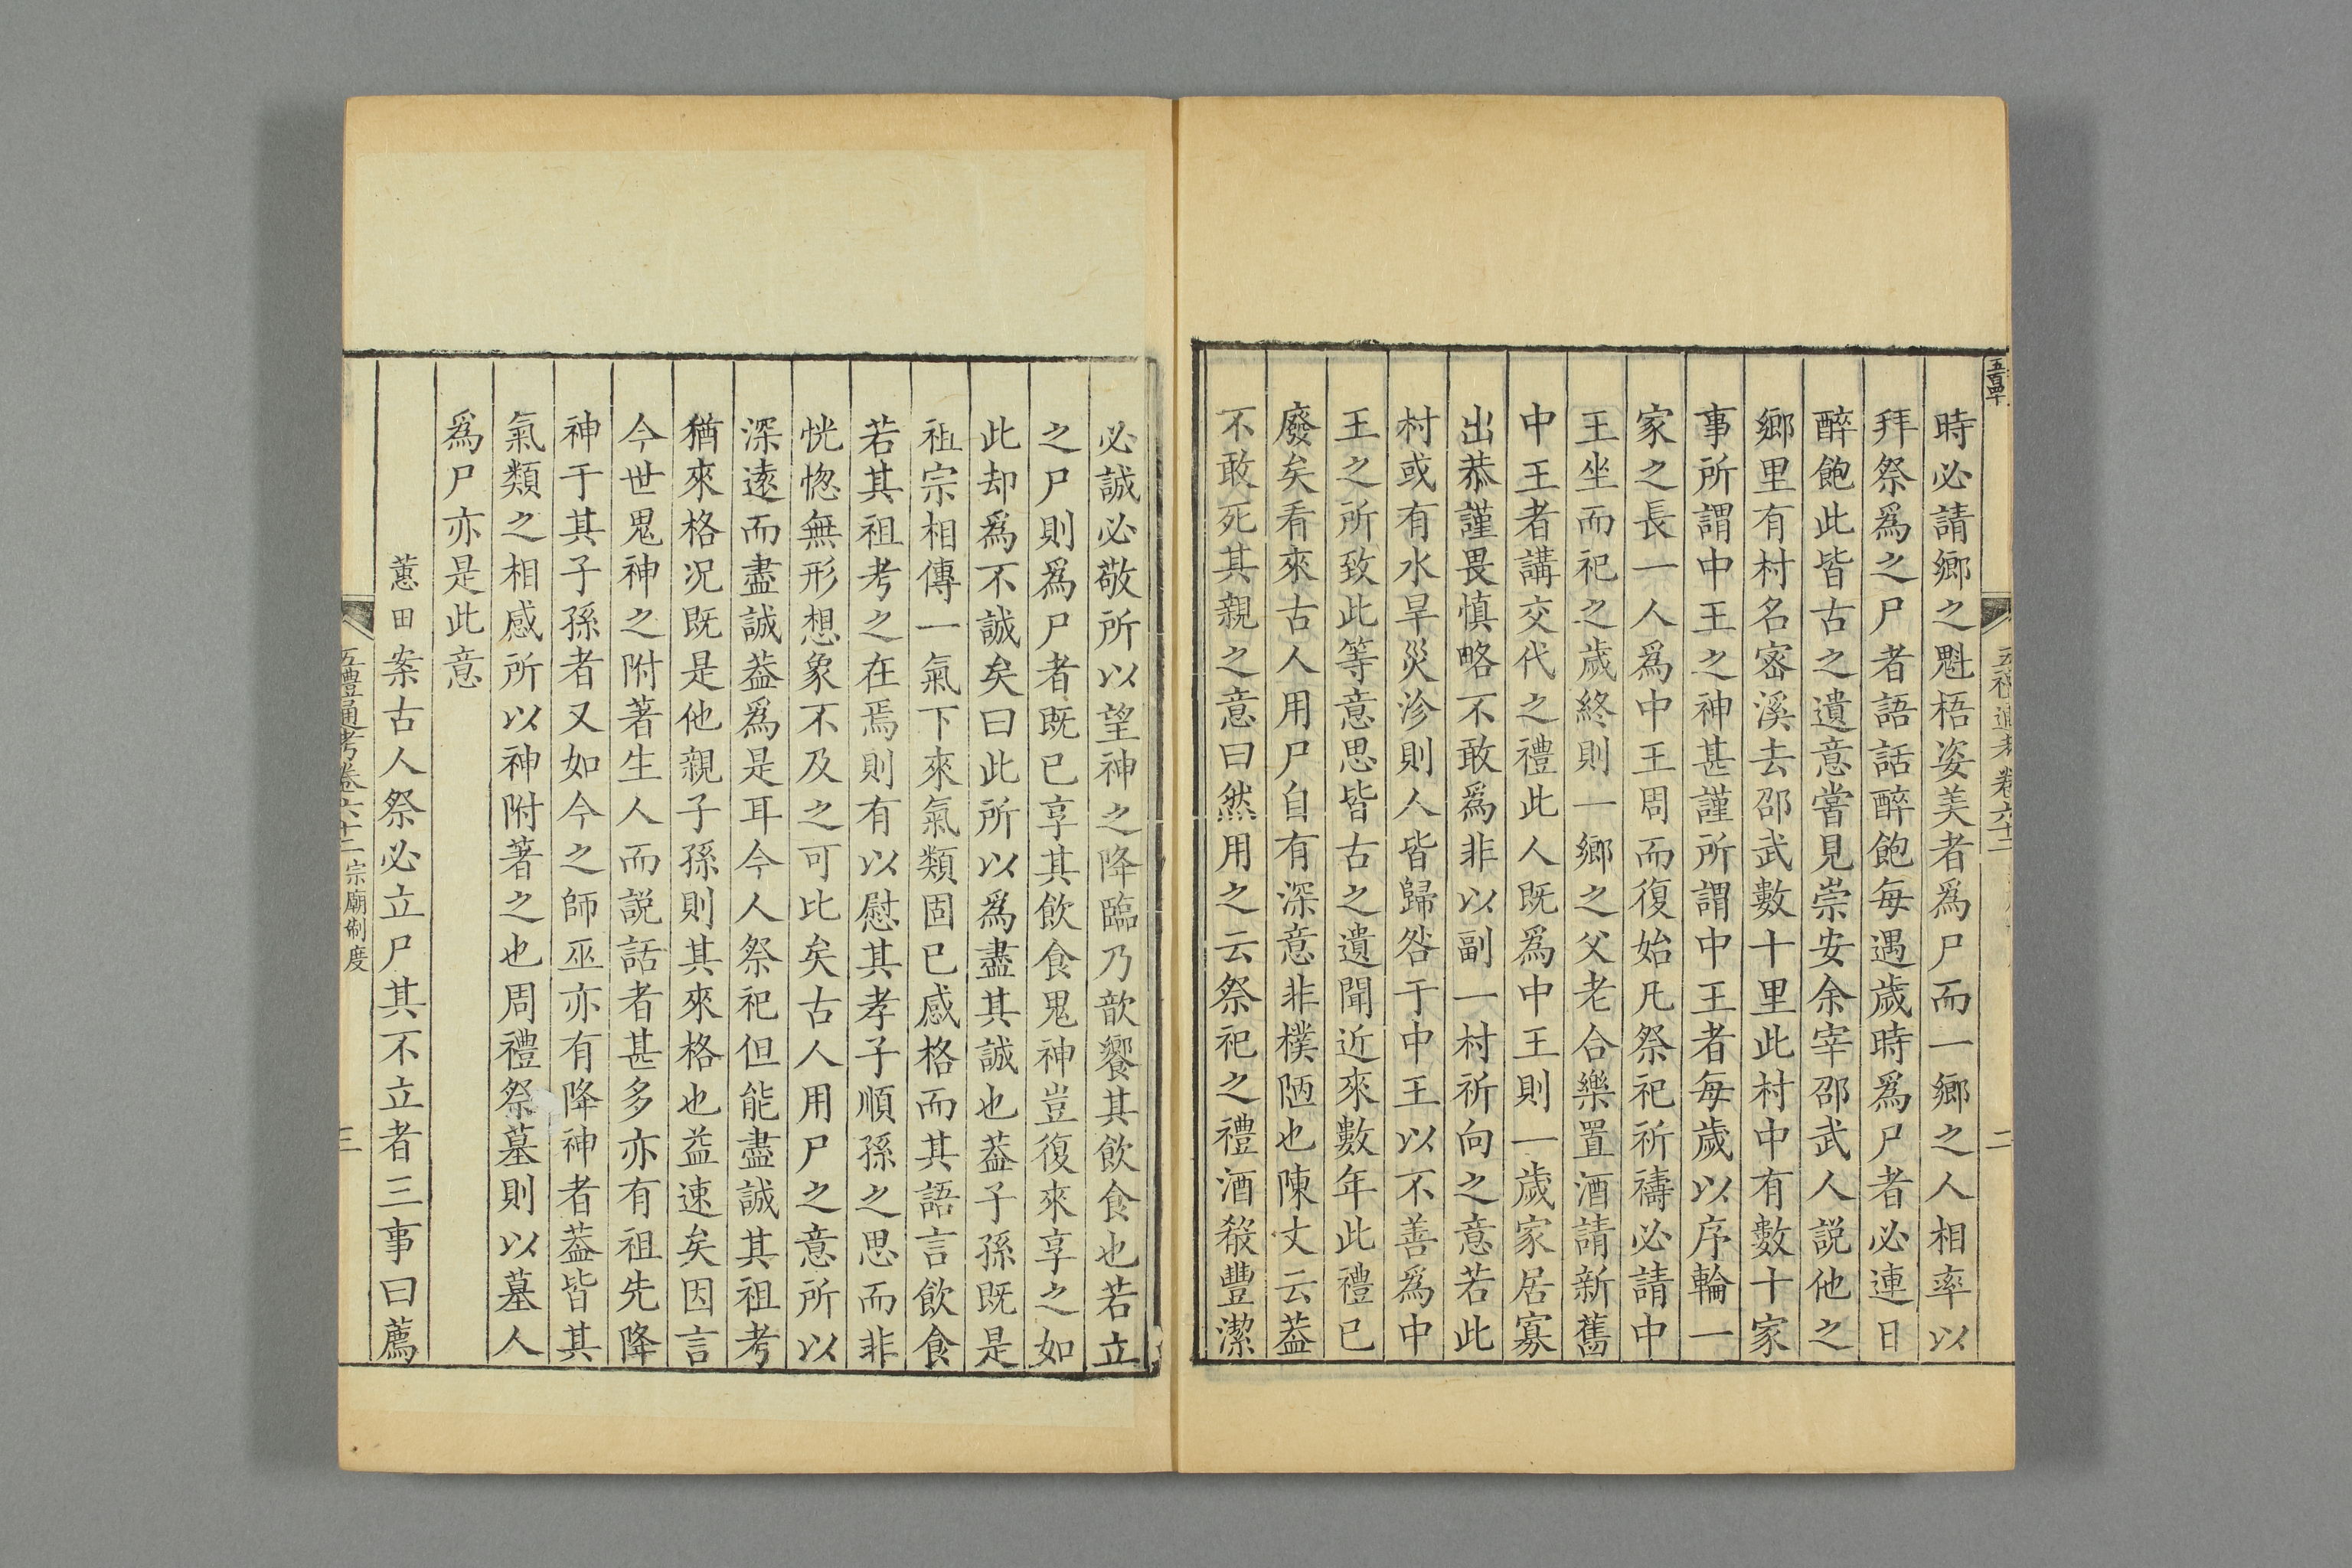 時必請鄉之魁梧姿美者爲尸而一鄉之人相率以
拜祭爲之尸者語話醉飽每遇歲時爲尸者必連日
醉飽此皆古之遺意嘗見崇安余宰邵武人説他之
鄉里有村名密溪去邵武數十里此村中有數十家
事所謂中王之神甚謹所謂中王者每歲以序輪一
家之長一人爲中王周而復始凡祭祀祈禱必請中
王坐而祀之歲終則一鄉之父老合樂置酒請新舊
中王者講交代之禮此人既爲中王則一歲家居寡
出恭謹畏慎略不敢爲非以副一村祈向之意若此
村或有水旱災沴則人皆歸咎于中王以不善爲中
王之所致此等意思皆古之遺聞近來數年此禮已
廢矣看來古人用尸自有深意非樸陋也陳丈云葢
不敢死其親之意曰然用之云祭祀之禮酒殽豐潔
必誠必敬所以望神之降臨乃歆饗其飲食也若立
之尸則爲尸者既已享其飲食鬼神豈復來享之如
此却爲不誠矣曰此所以爲盡其誠也葢子孫既是
祖宗相傳一氣下來氣類固已感格而其語言飲食
若其祖考之在焉則有以慰其孝子順孫之思而非
恍惚無形想象不及之可比矣古人用尸之意所以
深遠而盡誠葢爲是耳今人祭祀但能盡誠其祖考
猶來格況既是他親子孫則其來格也益速矣因言
今世鬼神之附著生人而説話者甚多亦有祖先降
神于其子孫者又如今之師巫亦有降神者葢皆其
氣類之相感所以神附著之也周禮祭墓則以墓人
爲尸亦是此意
蕙田案古人祭必立尸其不立者三事曰薦
五禮通考卷六十二 宗廟制度 三